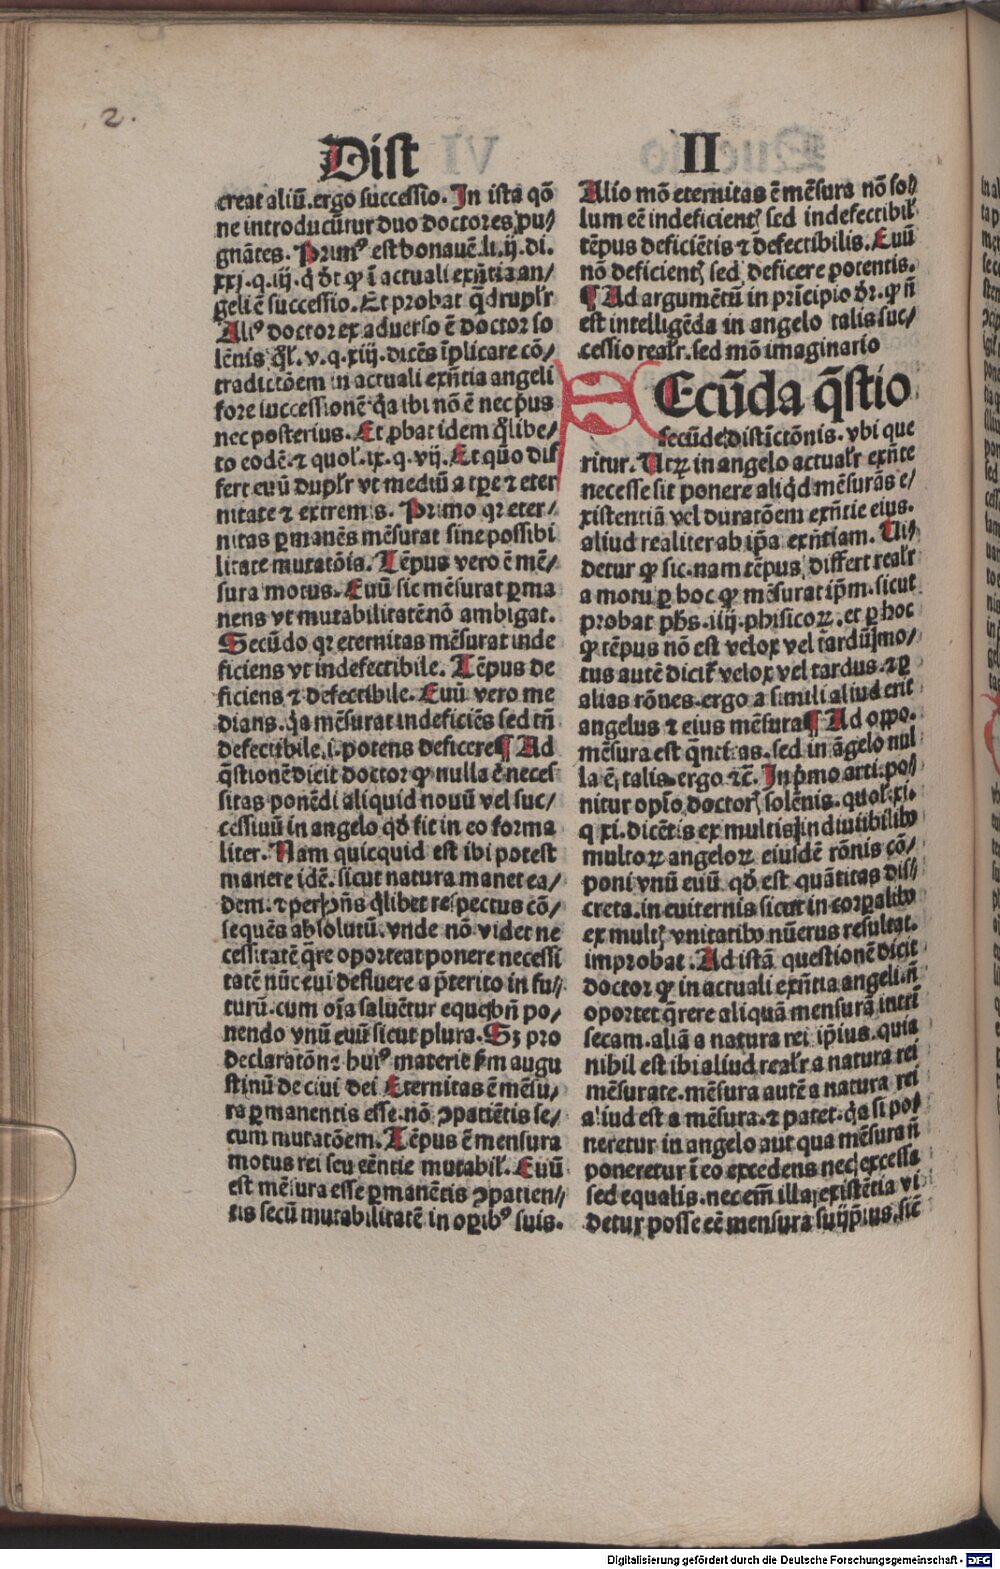 2.
Dist II
creat aliū.ergo successio. In ista qō
ne introducūtur duo doctores pu/
gnātes. Primꝰ est bonauē.li.ij.di.
xxj.q.iij.q̇ dt̄ ꝙ ī actuali exn̄tia an/
geli ē successio. Et probat q̇druplr̄
Aliꝰ doctor ex aduerso ē doctor so
lēnis q̇l̄. v.q.xiij.dicēs īplicare cō/
tradictōem in actuali exn̄tia angeli
fore successionē q̇a ibi nō ē nec p̄us
nec posterius. Et ꝓbat idem q̇libe/
to eodē.⁊ quol̄.ix.q.vij. Et quō dif
fert euū duplr̄ vt mediū a tꝑe ⁊ eter
nitate ⁊ extremis. Primo qꝛ eter/
nitas ꝑmanēs mēsurat sine possibi
litate mutatōis. Tēpus vero ē mē/
sura motus. Euū sic mēsurat ꝑma
nens vt mutabilitatē nō ambigat.
Secūdo qꝛ eternitas mēsurat inde
ficiens vt indefectibile. Tēpus de
ficiens ⁊ defectibile. Euū vero me
dians. q̇a mēsurat indeficiēs sed tn̄
defectibile.i.potens deficere ¶ Ad
q̄stionē dicit doctor ꝙ nulla ē neces
sitas ponēdi aliquid nouū vel suc/
cessiuū in angelo qd̄ fit in eo forma
liter. Nam quicquid est ibi potest
manere idē. sicut natura manet ea/
dem.⁊ per ꝯn̄s q̇libet respectus cō/
sequēs absolutū.vnde nō videt ne
cessitatē q̄re oporteat ponere necessi
tatē nūc eui defluere a p̄terito in fu//
turū.cum oīa saluētur eque bn̄ po/
nendo vnū euū sicut plura. Sꝫ pro
declaratōne huiꝰ materie ẜm augu
stinū de ciui dei Eternitas ē mēsu/
ra ꝑmanentis esse.nō ꝯpatiētis se/
cum mutatōem. Tēpus ē mensura
motus rei seu eēntie mutabil̄. Euū
est mēsura esse ꝑmanētis ꝯpatien//
tis secū mutabilitatē in oꝑibꝰ suis.
Alio mō eternitas ē mēsura nō so//
lum eē indeficientꝭ sed indefectibil̄
tēpus deficiētis ⁊ defectibilis. Euū
nō deficientꝭ sed deficere potentis.
¶ Ad argumētū in prīcipio dr̄.ꝙ n̄
est intelligēda in angelo talis suc/
cessio realr̄.sed mō imaginario
Ecūda q̄stio
secūde distīctōnis. vbi que
ritur. Utꝝ in angelo actualr̄ exn̄te
necesse sit ponere aliq̇d mēsurās e/
xistentiā vel duratōem exn̄tie eius.
aliud realiter ab ip̄a exn̄tiam. Ui//
detur ꝙ sic.nam tēpus differt realr̄
a motu ꝑ hoc ꝙ mēsurat ip̄m.sicut
probat ph̄s.iiij.phisicoꝝ.et ꝑ hoc
ꝙ tēpus nō est velox vel tardū mo/
tus autē dicit̄ velox vel tardus.⁊ ꝑ
alias rōnes.ergo a simili aliud erit
angelus ⁊ eius mēsura ¶ Ad oppo.
mēsura est q̄ntitas.sed in āgelo nul
la ē talis.ergo ⁊c̄. In p̄mo arti.po//
nitur opīo doctorꝭ solēnis.quol̄.xi.
q xi.dicētis ex multis indiuisibilibꝰ
multoꝝ angeloꝝ eiusdē rōnis cō/
poni vnū euū qd̄ est quātitas dis//
creta.in euiternis sicut in corꝑalibꝰ
ex multꝭ vnitatibꝰ nūerus resultat.
improbat. Ad istā questionē dicit
doctor ꝙ in actuali exn̄tia angeli.n̄
oportet q̄rere aliquā mensurā intri
secam.aliā a natura rei ip̄ius.quia
nihil est ibi aliud realr̄ a natura rei
mēsurate.mēsura autē a natura rei
aliud est a mēsura.⁊ patet.q̇a si po/
neretur in angelo aut qua mēsura n̄
poneretur ī eo excedens nec excessa
sed equalis.nec em̄ illa existētia vi
detur posse eē mensura sui ip̄ius.sic̄
Digitalisierung gefördert durch die Deutsche Forschungsgemeinschaft - DFG